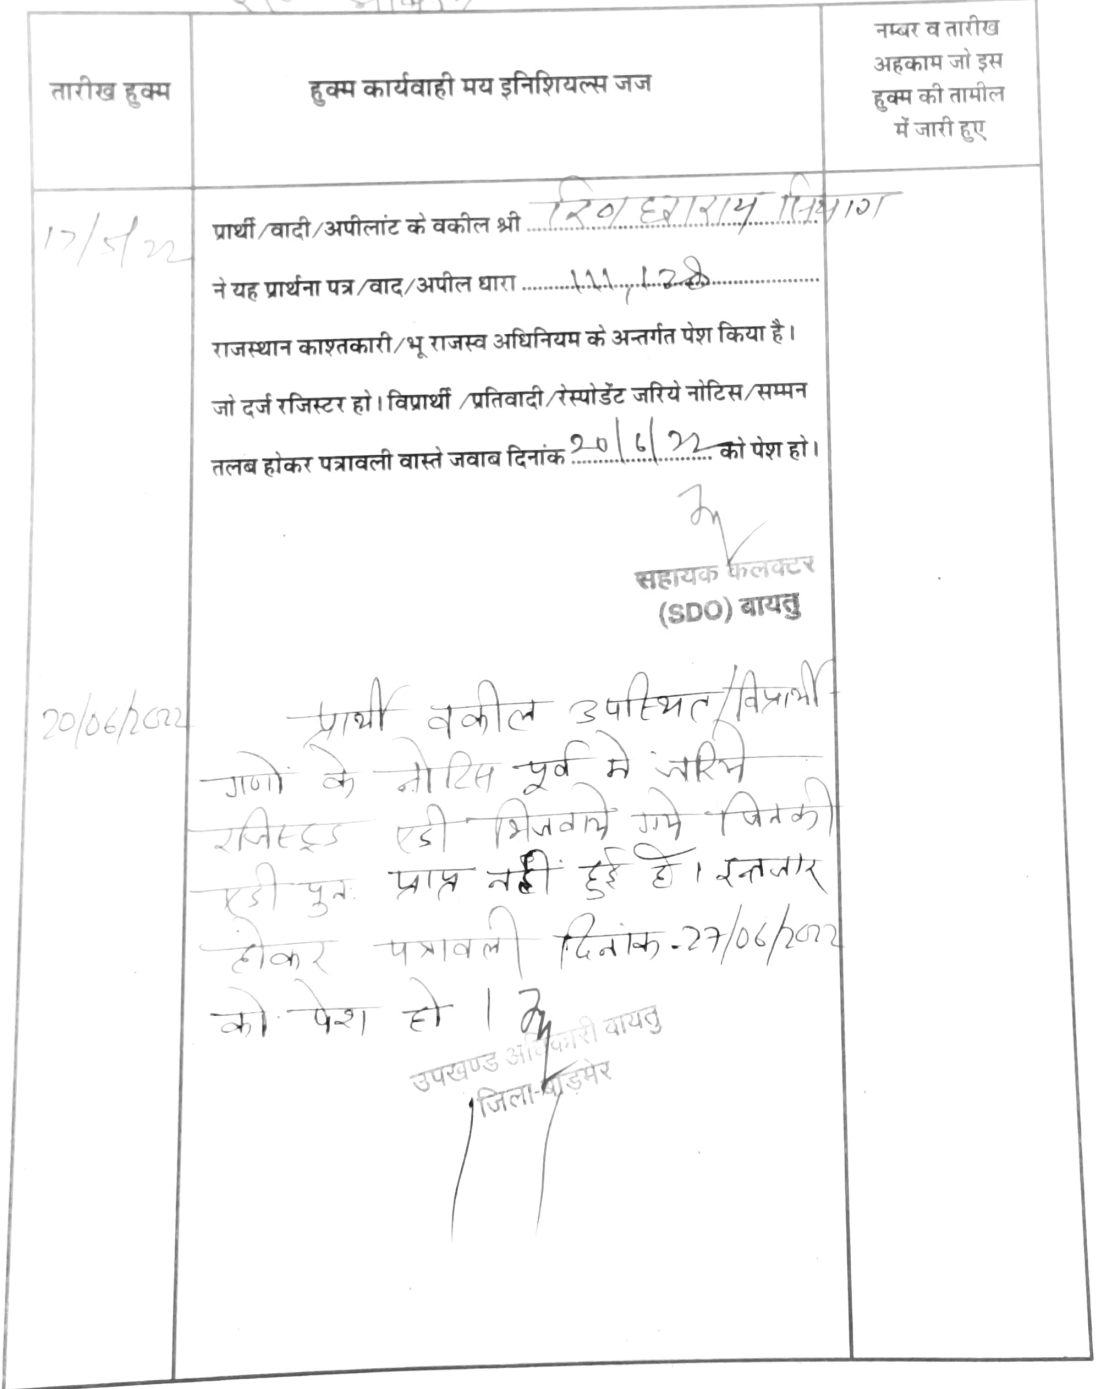 तारीख हुक्म
हुक्म कार्यवाही मय इनिशियल्स जज
नम्बर व तारीख
अहकाम जो इस
हुक्म की तामील
में जारी हुए
17/5/22
प्रार्थी/वादी/अपीलांट के वकील श्री
ने यह प्रार्थना पत्र/वाद/अपील धारा 111, 128
राजस्थान काश्तकारी/भू राजस्व अधिनियम के अन्तर्गत पेश किया है।
जो दर्ज रजिस्टर हो। विप्रार्थी /प्रतिवादी/रेस्पोडेंट जरिये नोटिस/सम्मन
तलब होकर पत्रावली वास्ते जवाब दिनांक 20/6/22 को पेश हो।
सहायक कलक्टर
(SDO) बायतु
20/06/2022
प्रार्थी वकील उपस्थित/विप्रार्थी
गणों के नोटिस पूर्व मे जरिये
रजिस्ट्रड एडी भिजवाये गये जिनकी
एडी पुनः प्राप्त नहीं हुई है। इन्तजार
होकर पत्रावली दिनांक-27/06/2022
को पेश हो।
उपखण्ड अधिकारी बायतु
जिला-बाड़मेर